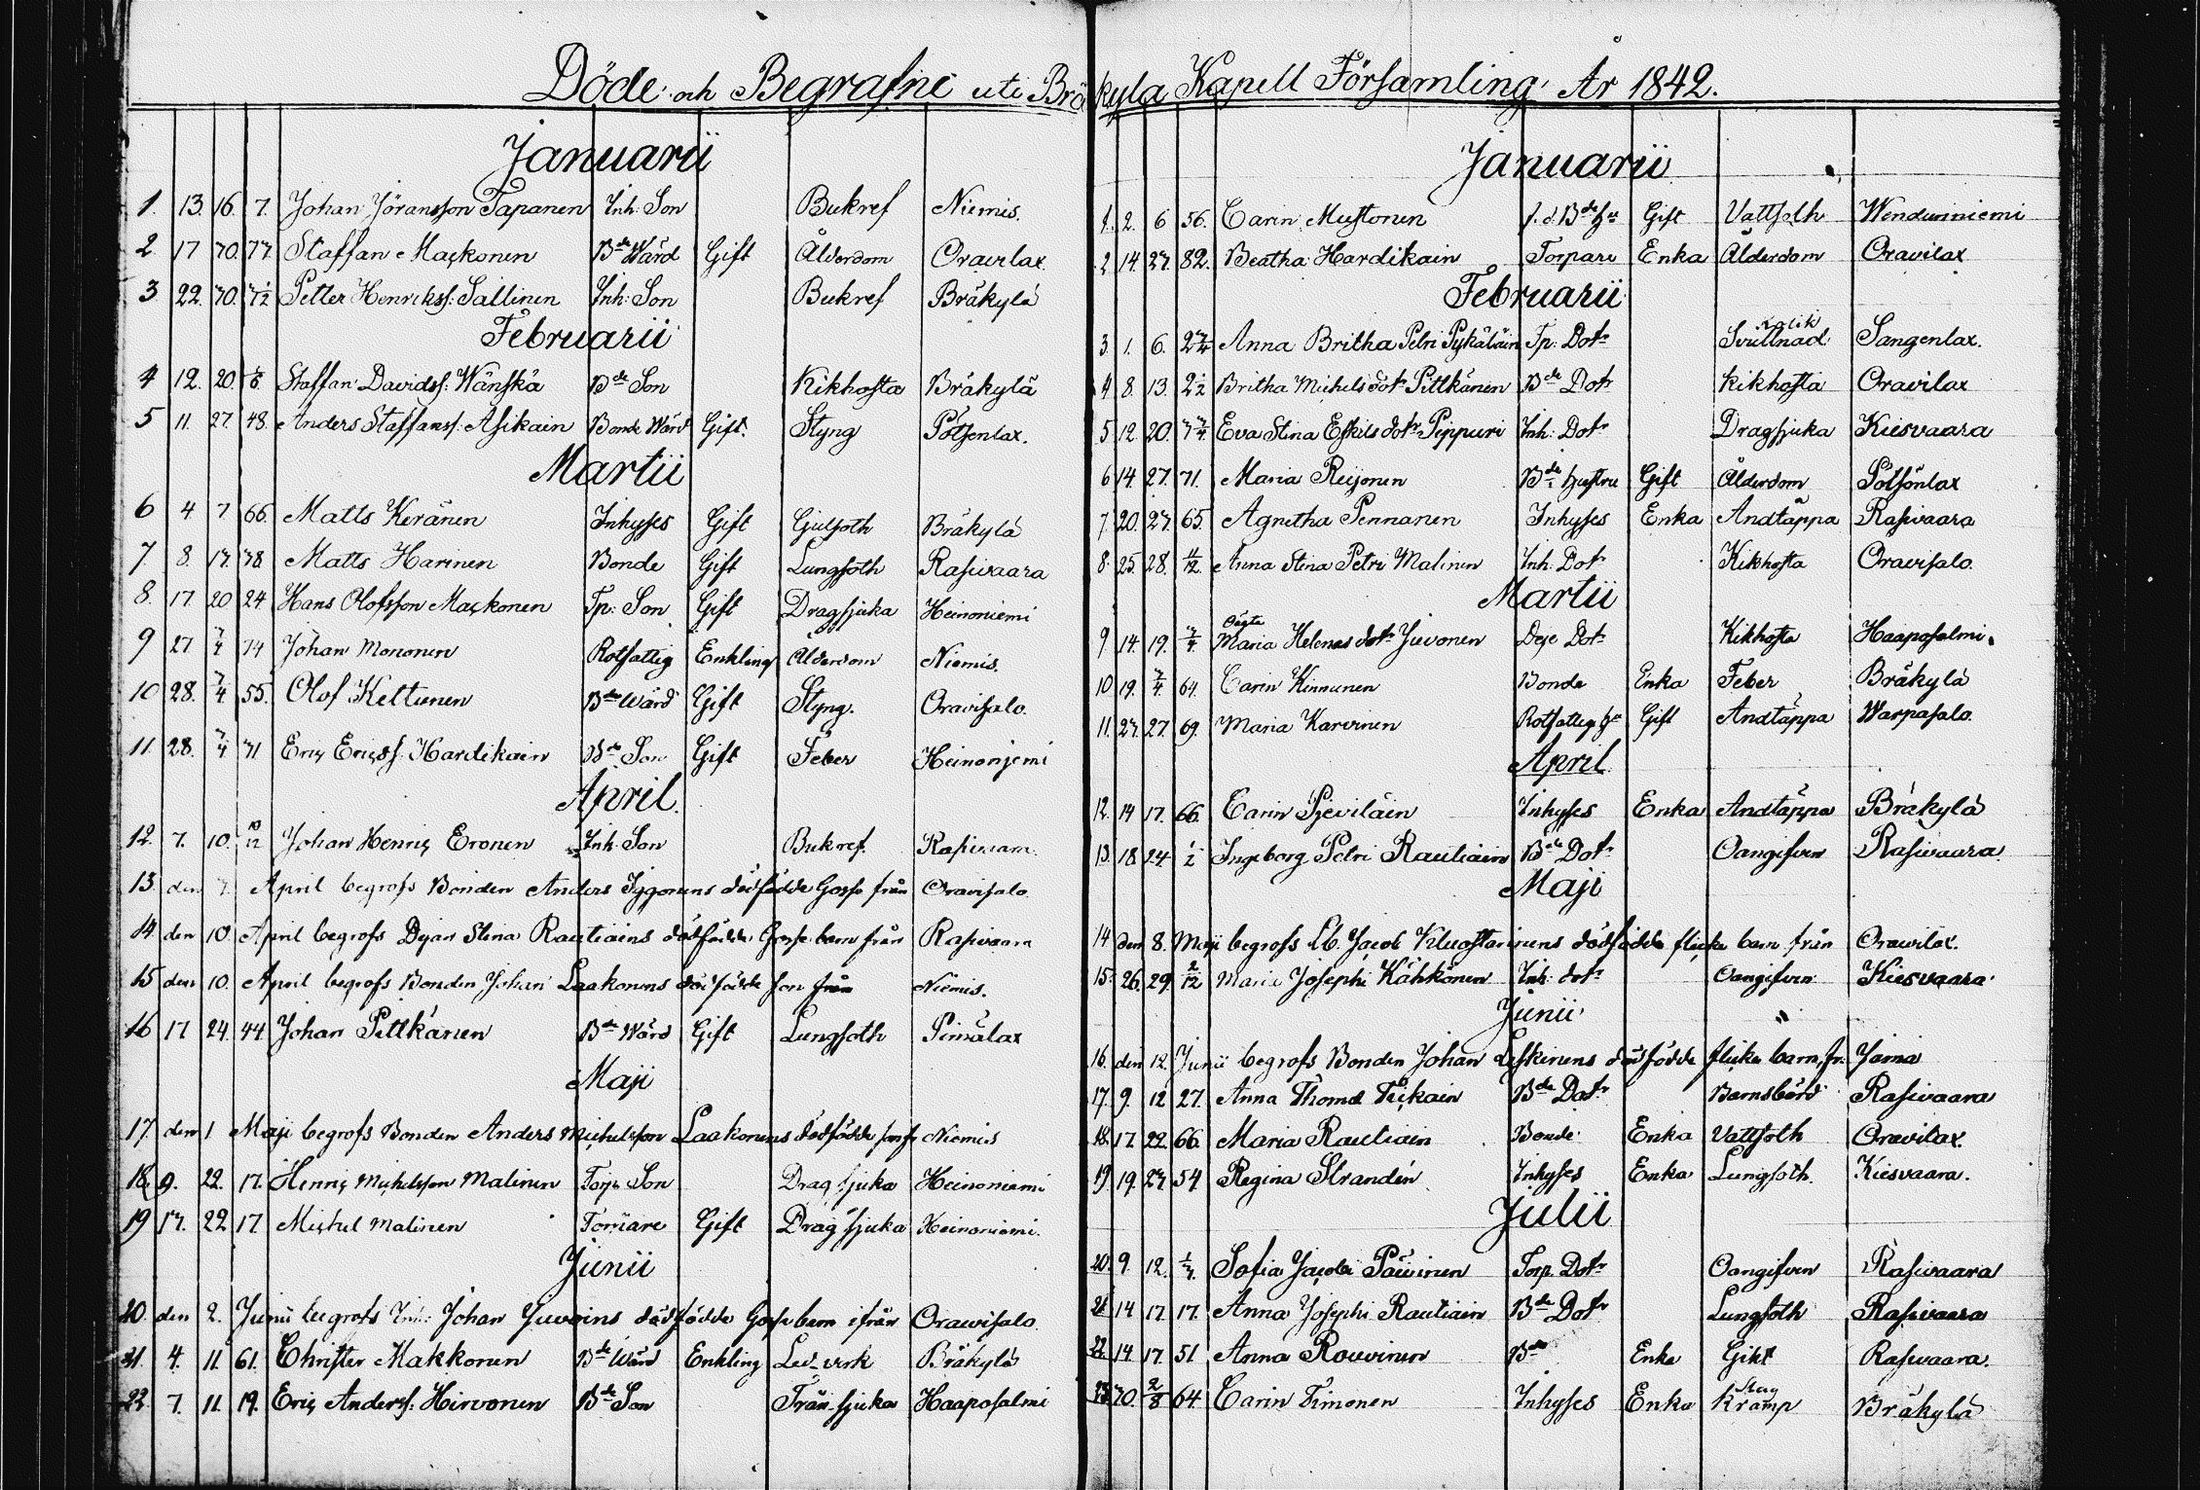 Döde och Begrafne uti Bräkylä Kapell Församling År 1842.
Januarii
1. 13. 16. 7. Johan Jöransson Tapanen Inh: Son Bukref Niemis.
2 17 Staffan Maçkonen Bde Wärd Gift Ålderdom Oravilax
3 22. Petter Henrikss: Sallinen Inh: Son Bukref Bräkylä
Februarii
4 12. 20. Staffan Davidss: Wänskä Bde Son Kikhosta Bräkylä
5 11. 27 48. Anders Staffanss: Asikain Bonde Wärd Gift. Styng Pötsenlax.
Martii
6 4 7 66. Matts Keränen Inhyses Gift Gulsoth Bräkylä
7 8. 17. 38 Matts Harinen Bonde Gift Lungsoth Rasivaara
8. 17 20 24 Hans Olofsson Maçkonen Tp: Son Gift Dragsjuka Heinoniemi
9 27 74 Johan Mononen Rotfattig Enkling Ålderdom Niemis.
10 28. 55. Olof Kettunen Bde Wärd Gift Styng. Oravisalo.
11. 28. 71 Eriç Eriçss: Hardikain Bde Son Gift Feber Heinoniemi
April.
12. 7. 10. 10/12 Johan Henriç Eronen Inh: Son Bukref. Rasivaara
13 den 7. April begrofs Bonden Anders Iggonens dödfödde Gosse från Oravisalo.
14 den 10. April begrofs Stina Rautiains dödfödde Gosse barn från Rasivaara
15 den 10. April begrofs Bonden Johan Laakonens dödfödde son från Niemis.
16 17 24. 44 Johan Pittkänen Bde Wärd Gift Lungsoth Pimälax
Maji
17. den 1 Maji begrofs Bonden Anders Miçhelsson Laakonens dödfödde Niemis
18. 9. 22. 17. Henriç Miçhelsson Malinen Torp. Son Drag sjuka Heinoniemi
19 17. 22 17 Miçhel Malinen Gift Drag sjuka Heinoniemi.
Junii
20. den 2. Junii begrofs Inh: Johan Juvoins dödfödde Gosse barn ifrån Oravisalo.
21. 4. 11. 61. Christer Makkonen Bde Wärd Enkling Led-verk Bräkylä
22. 7. 11. 19. Eriç Anderss: Hirvonen Bde Son Tränsjuka Haaposalmi
Januarii
1. 2. 6 56. Carin Mustonen Gift Vattsoth Wendurinniemi
2 14. 27. 82. Beatha Hardikain Torpare Enka Ålderdom Oravilax
Februarii
3. 1. 6. Anna Britha Petri Pykäläin Tp: Dotr Svullnad Sangenlax.
4 8. 13. 2 1/2 Britha Michelsdotr Pittkänen Bde Dotr Kikhosta Oravilax
5 12. 20. Eva Stina Eskilsdotr Pippuri Inh: Dotr Dragsjuka Kiesvaara
6 14. 27. 71. Maria Reijonen Bde hustru Gift Ålderdom Potsönlax
7 20. 27. 65. Agnetha Pennanen Inhyses Enka Andtäppa Rasivaara
8. 25. 28. 11/12. Anna Stina Petri Malinen Inh: Dotr Kikhosta Oravisalo.
Martii
9 14. 19. Oägta Maria Helenas dotr Juvonen Deje Dotr Kikhosta Haaposalmi.
10 19. 64. Carin Kinnunen Bonde Enka Feber Bräkylä
11. 27. 69. Maria Karvinen Rotfattig Gift Andtäppa Warpasalo.
April
12. 14 17. 66. Carin Pieviläin Inhyses Enka Andtäppa Bräkylä
13. 18 24 1/2 Ingeborg Petri Rautiain Bde Dotr Oangifven Rasivaara.
Maji
14 den 8. Maji begrofs Jacob dödfödde flicke barn från Oravilax.
15. 26. 29. 2/12 Maria Josephi Kähkönen Inh: dotr Oangifven Kiesvaara
Junii
16. den 12. Junii begrofs Bonden Johan Leskinens dödfödde flicke barn, fr: Jama
17. 9. 12 27. Anna Thomæ Bde Dotr Barnsbörd Rasivaara
18. 17. 22. 66. Maria Rautiain Bonde Enka Vattsoth Oravilax.
19. 19. 27. 54 Regina Strandén Inhyses Enka Lungsoth. Kiesvaara.
Julii
20. 9. 12. Sofia Jacobi Torp. Dotr Oangifven Rasivaara
21. 14 17. 17. Anna Josephi Rautiain Bde Dotr Lungsoth Rasivaara
22. 14. 17. 51 Anna Rouvinen Bde Enka Gikt Rasivaara.
23. 2/8 64 Carin Timonen Inhyses Enka Slag Kramp Bräkylä